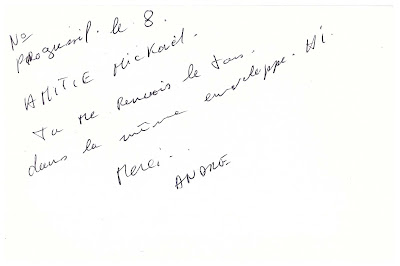 No
progressif. le 8.
AMITIE Mickael.
Tu me renvois le tous.
dans la même enveloppe.
Merci..
ANDRE